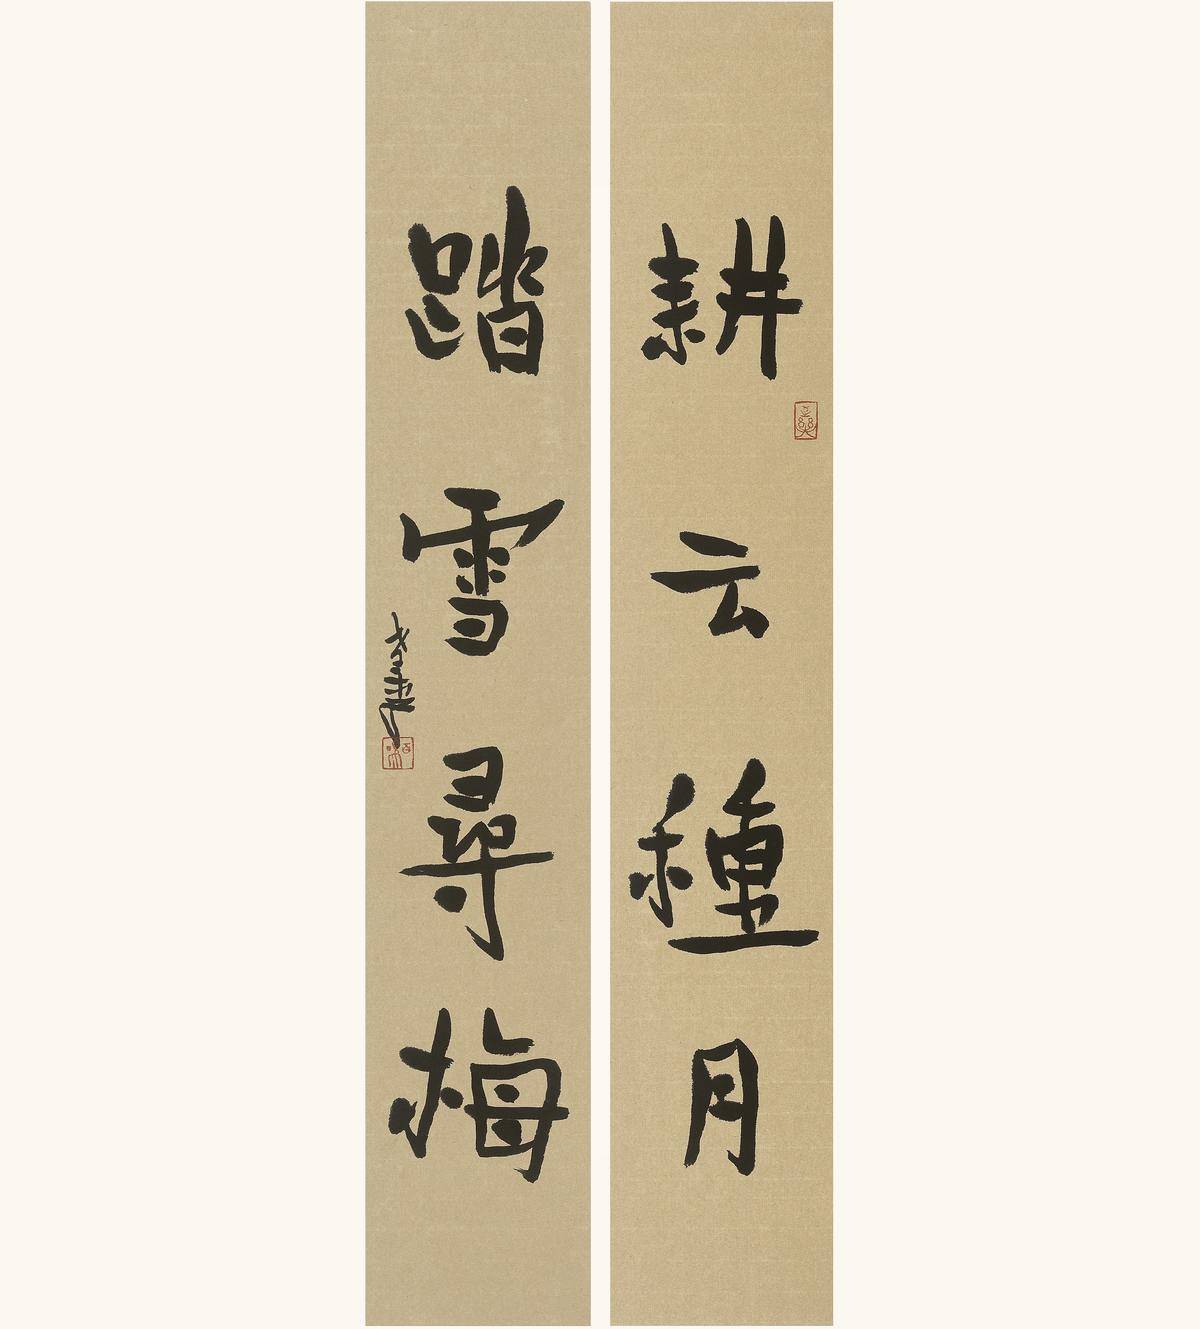 耕云種月
踏雪尋梅